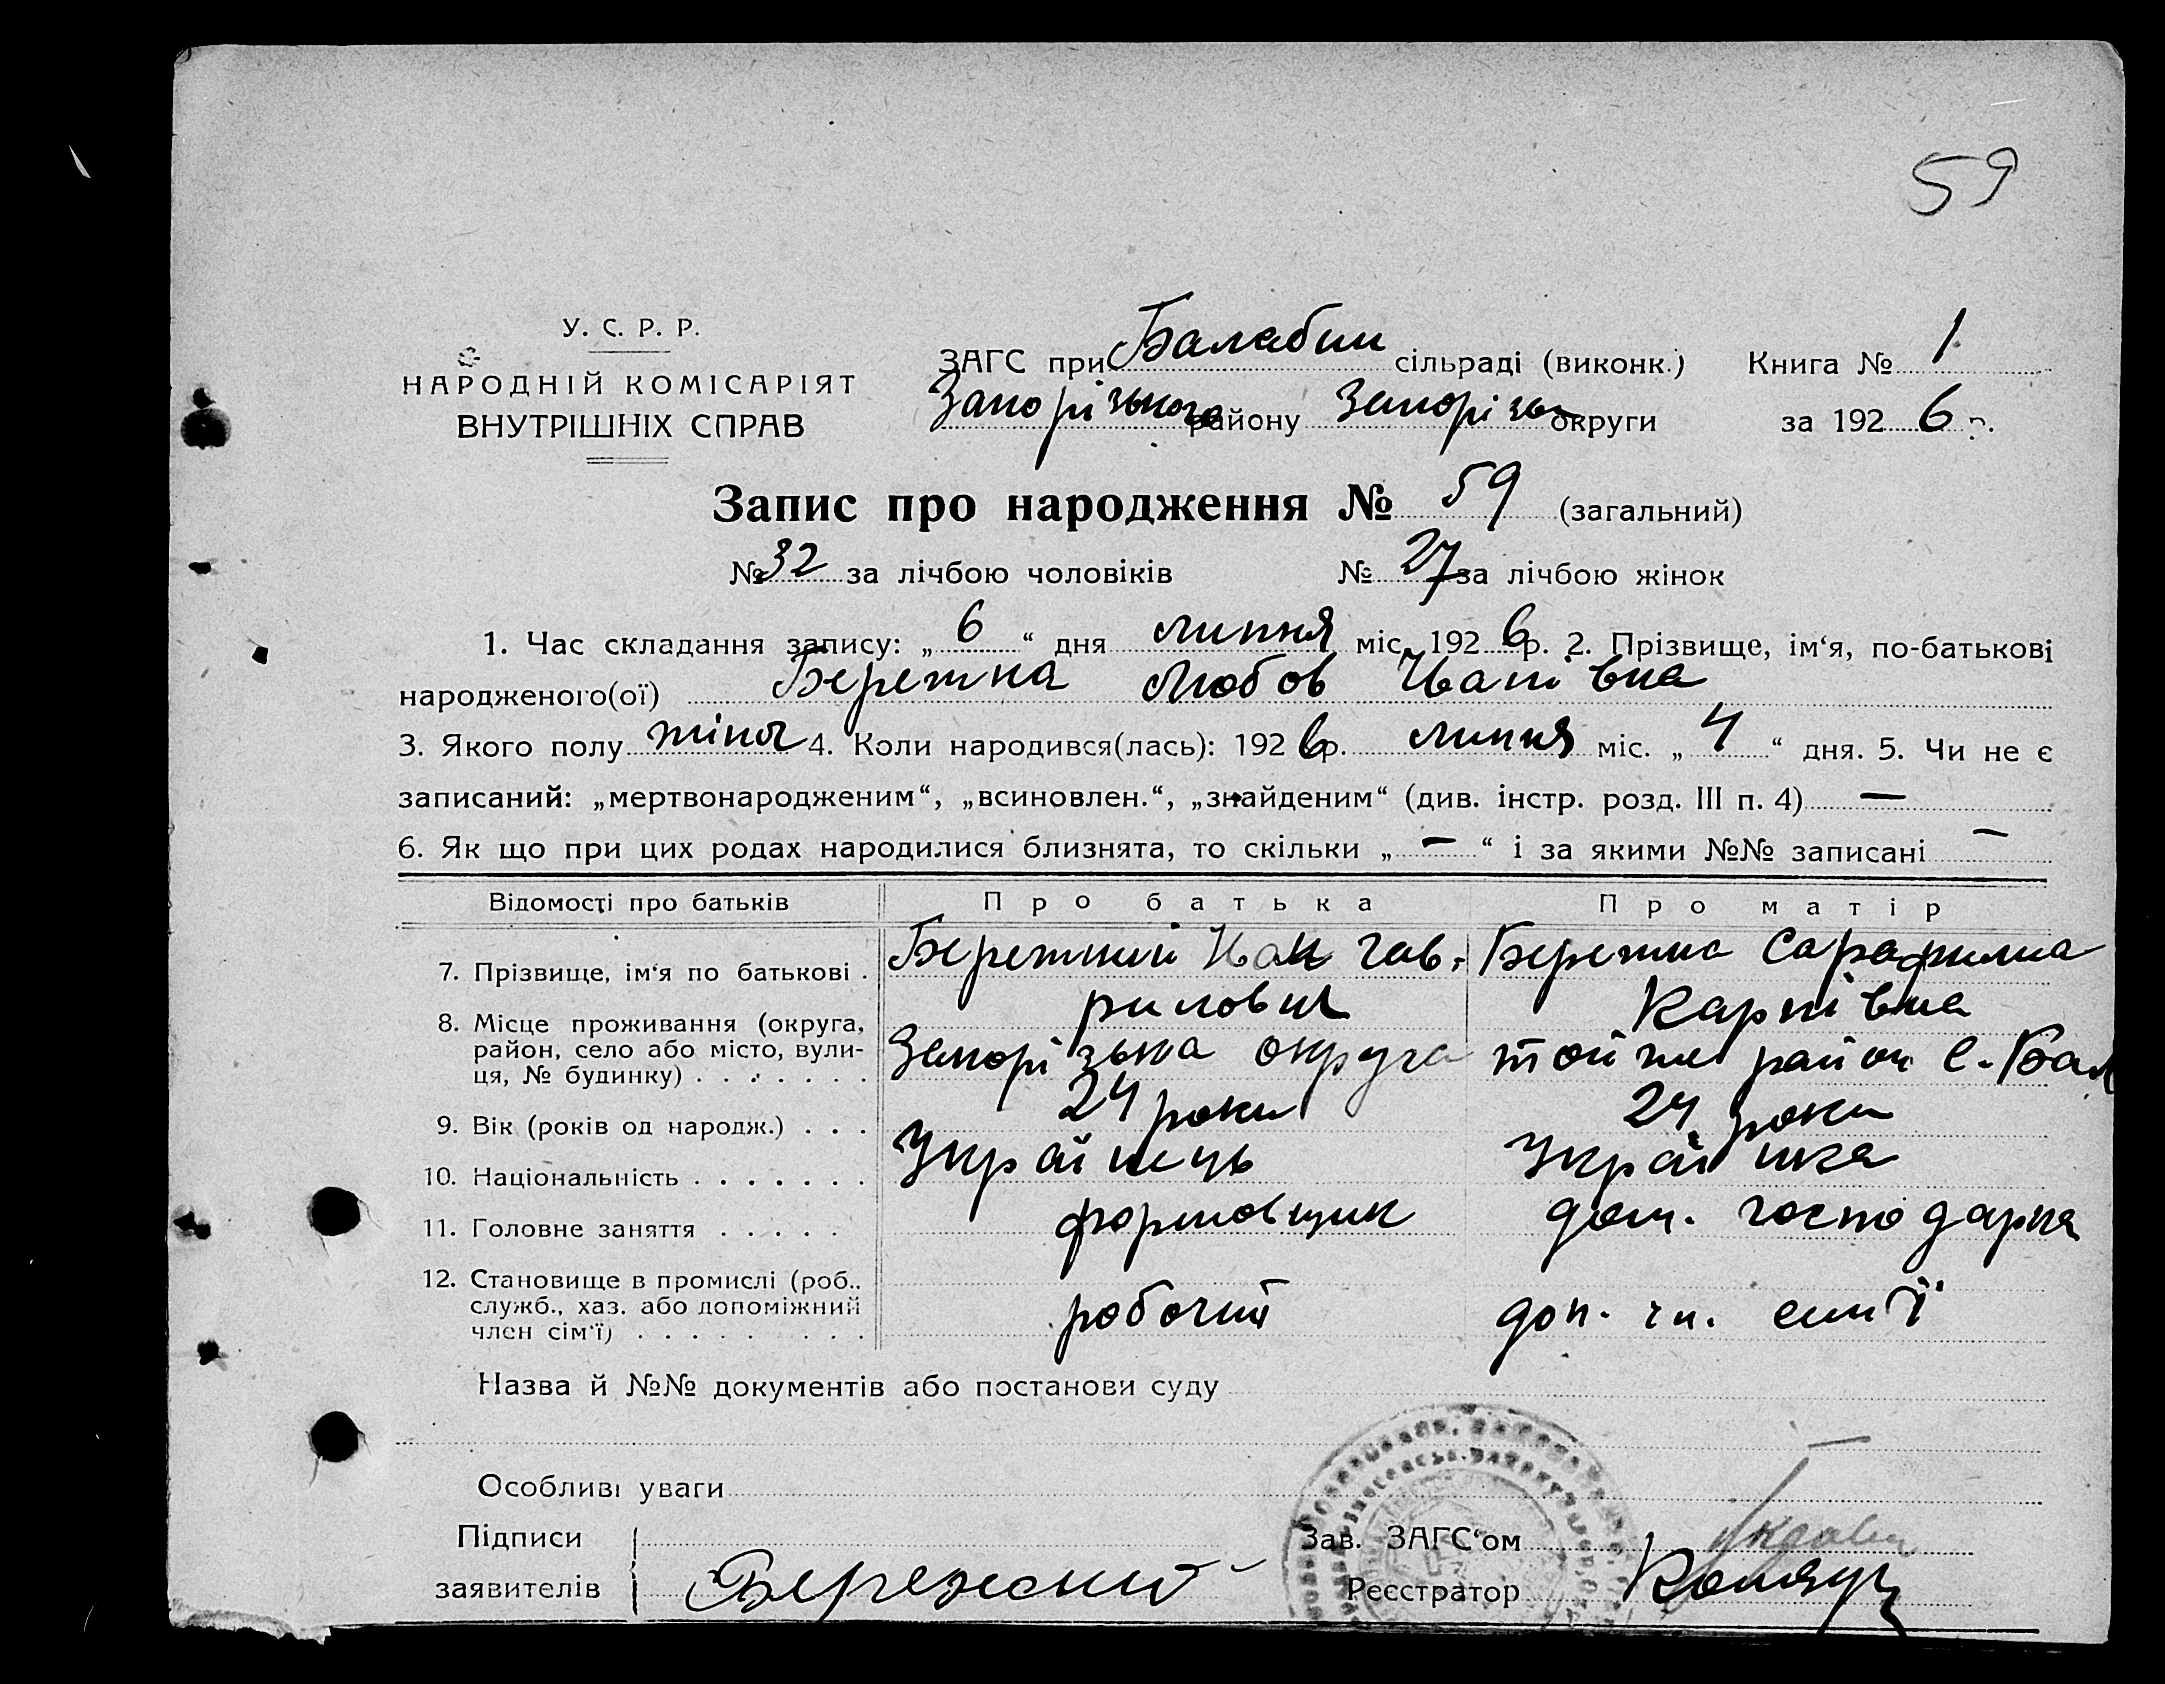 59
У. С. Р. Р.
НАРОДНІЙ КОМІСАРІЯТ
ВНУТРІШНІХ СПРАВ
ЗАГС при Балабин сільраді (виконк.) Книга № 1
Запорізького району Запорізьк округи за 1926 р.
Запис про народження № 59 (загальний)
№ 32 за лічбою чоловіків № 27 за лічбою жінок
1. Час складання запису: „6“ дня липня міс. 1926 р. 2. Прізвище, ім‘я, по-батькові
народженого(ої) Бережна Любов Іванівна
3. Якого полу жіноч 4. Коли народився(лась): 1926 р. липня міс. „4“ дня. 5. Чи не є
записаний: „мертвонародженим“, „всиновлен.“, „знайденим“ (див. інстр. розд. III п. 4) —
6. Як що при цих родах народилися близнята, то скільки „—“ і за якими №№ записані —
Відомості про батьків Про батька Про матір
7. Прізвище, ім‘я по батькові . Бережний Іван Гав- Бережна Сарафима
рилович Карпівна
8. Місце проживання (округа,
район, село або місто, вули-
ця, № будинку) . . . . . . . Запорізька округа той же район с. Бал
9. Вік (років од народж.) . . . 24 роки 24 роки
10. Національність . . . . . . . Українець Українка
11. Головне заняття . . . . . формовщик дом. господарка
12. Становище в промислі (роб.,
служб., хаз. або допоміжний
член сім‘ї) . . . . . . . . робочий доп. чл. сим‘ї
Назва й №№ документів або постанови суду
Особливі уваги
Підписи
заявителів Бережний
Зав. ЗАГС‘ом
Реєстратор